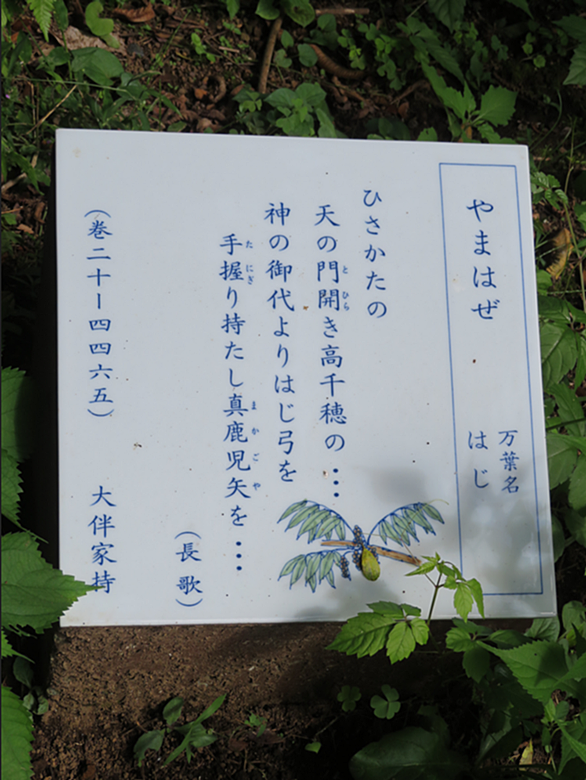 やまはぜ
万葉名
はじ
ひさかたの
天の門開き高千穂の…
神の御代よりはじ弓を
手握り持たし真鹿児矢を…
(長歌)
(巻二十ー四四六五)
大伴家持